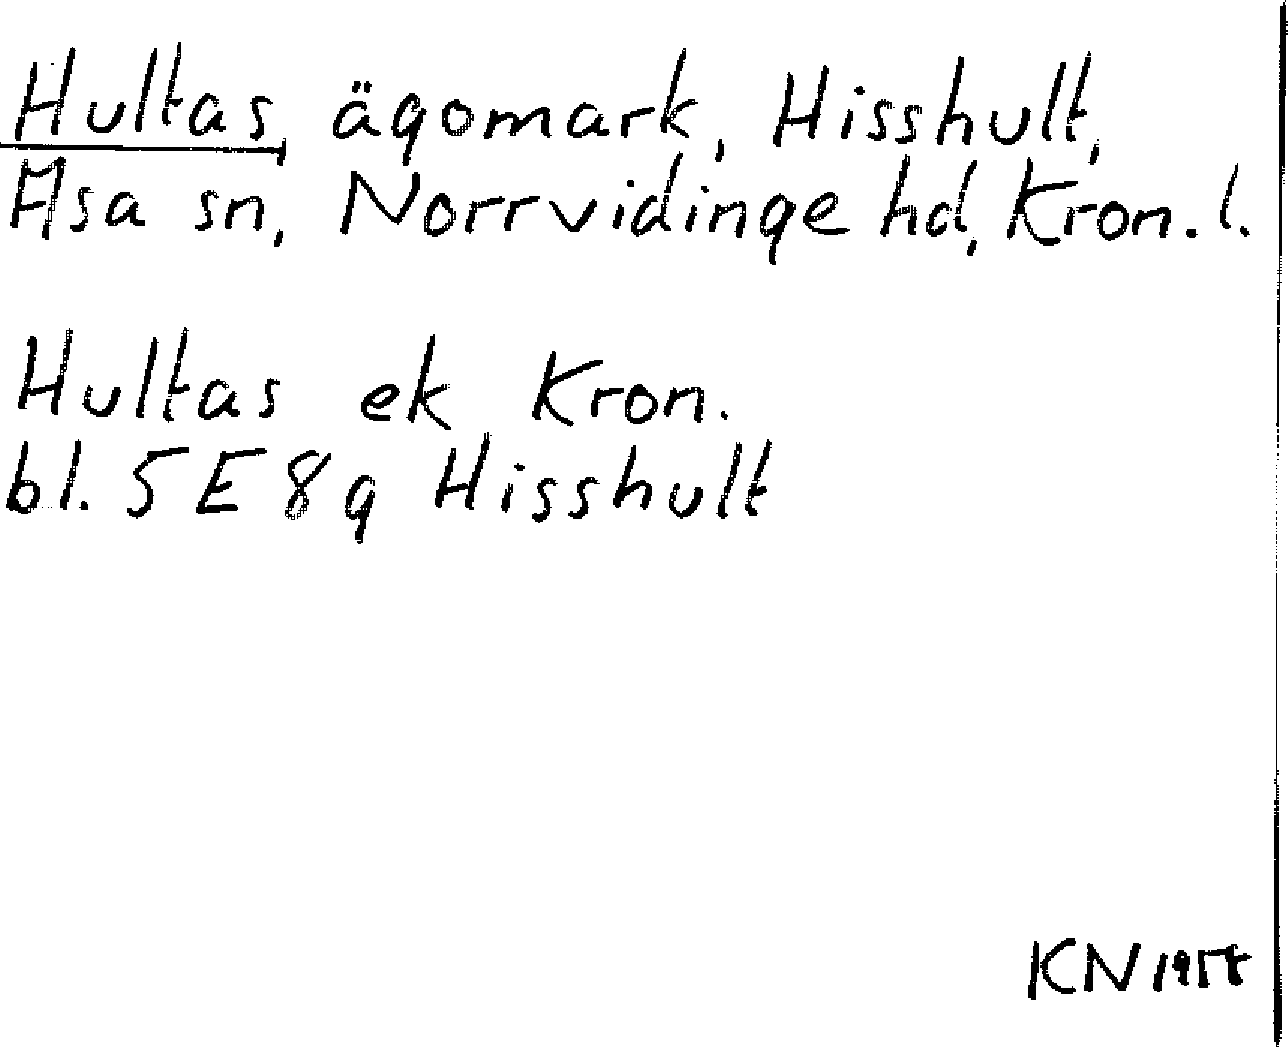 Hultas, ägomark, Hisshult,
Asa sn, Norrvidinge hd, Kron. l.
Hultas ek Kron.
bl. 5 E 8 g Hisshult
KN